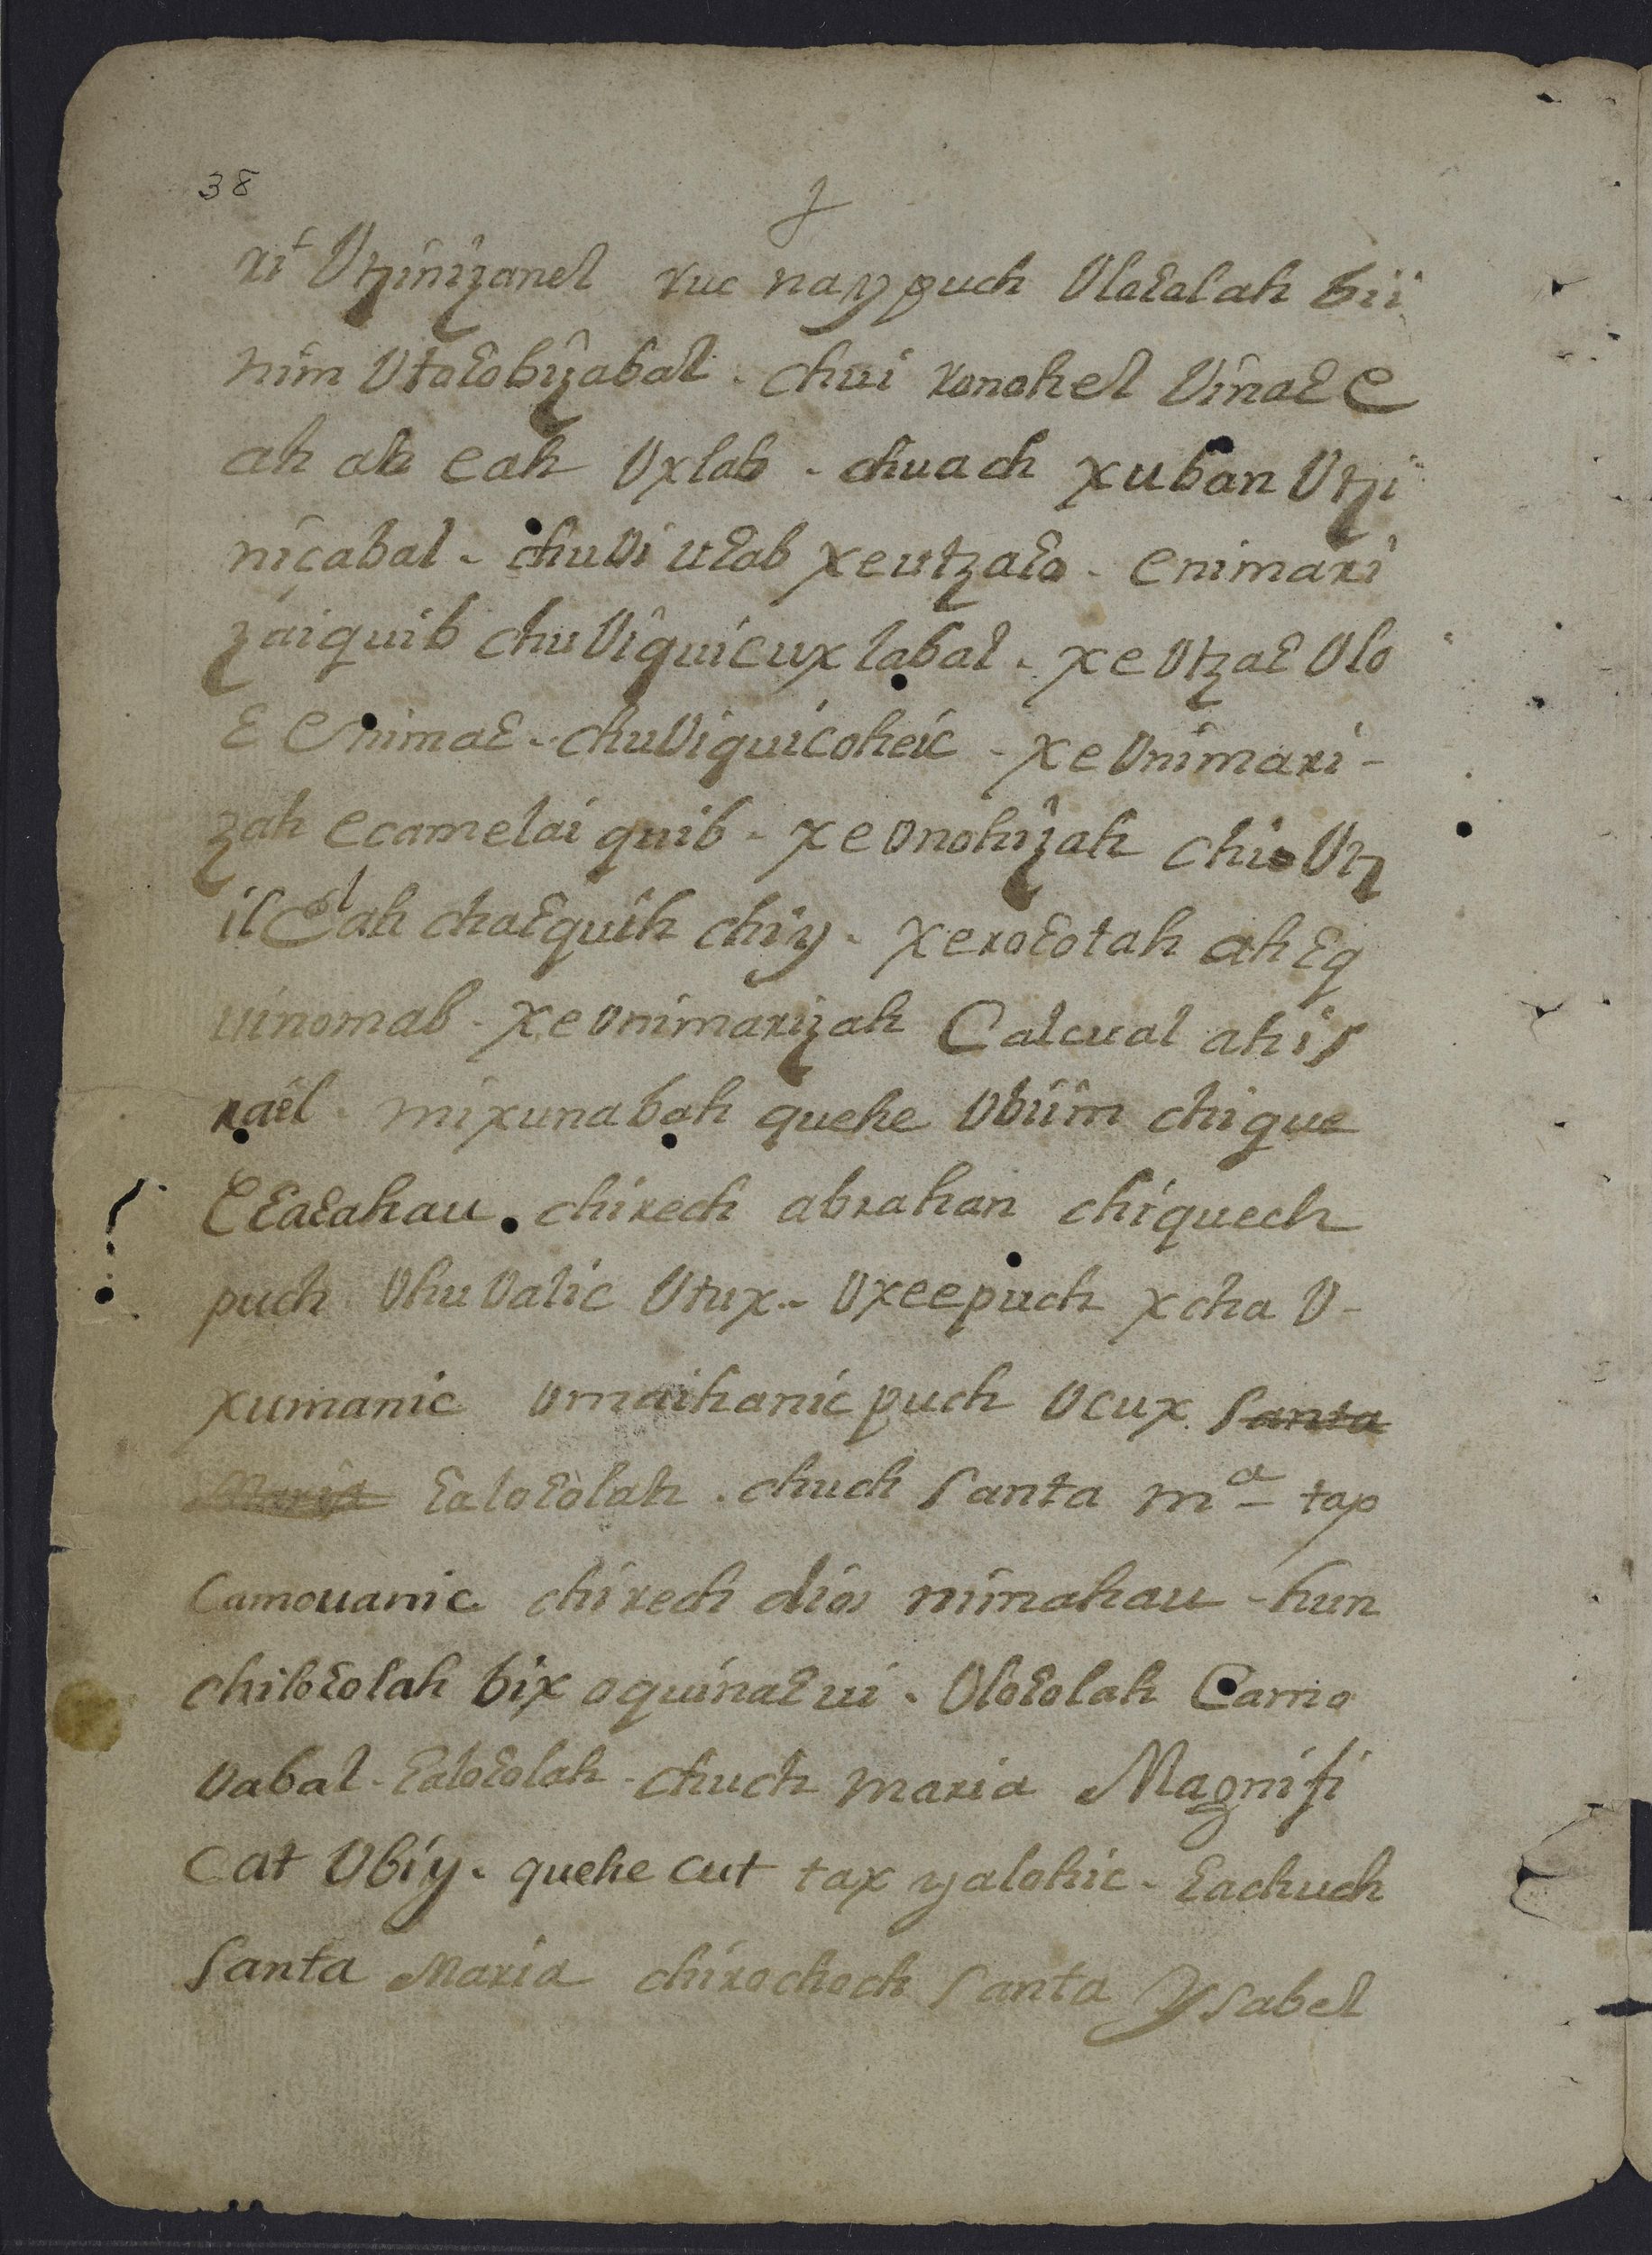 38
ri Vtziniçanel ruc naypuch Vloɛolah bii
nim Vtoɛobizabal. chui ronohel Vinaɛ e
ah ab eah Vxlab - chuach xuban Vtzi
niçabal - chuVi uɛab xeutzaɛo - enimari
zaiquib chuViquicuxlabal - xe Vtzaɛ Vlo
ɛ enimaɛ - chuViquicoheic - xe Vnimari-
zah ecamelai quib - xe Vnohizah chi Vtz
il el ah chaɛquih chiy - xeroɛotah ahɛq
uinomab - xe Vnimarizah Calcual ahis
rael. mixunabah quehe Vbiim chique
ɛɛaɛahau. chirech abrahan chiquech
puch VhuValic Vtux - Vxeepuch xcha V-
xumanic Vmaihanic puch Vcux Santa
Maria ɛaloɛolah. chuch Santa mª tap
Camouanic chirech dios nimahau - hun
chiloɛolah bix oquinaɛ ui. Vloɛolah Camo
Vabal - ɛaloɛolah - chuch maria Magnifi
Cat Vbiy. quehe cut tax yalohic - ɛachuch
Santa Maria chirochoch Santa Ysabel